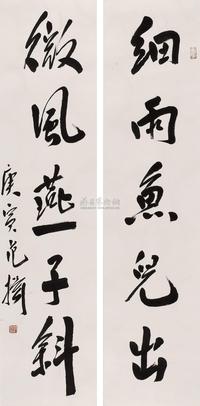 細雨魚兒出
微風燕子斜
庚寅范揚